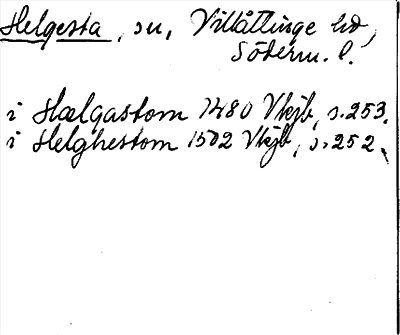 Helgesta, sn, Villåttinge hd,
Söderm. l.
i Hælgastom 1480 Vhjb, s. 253.
i Helghestom 1502 Vhjb, s. 252.